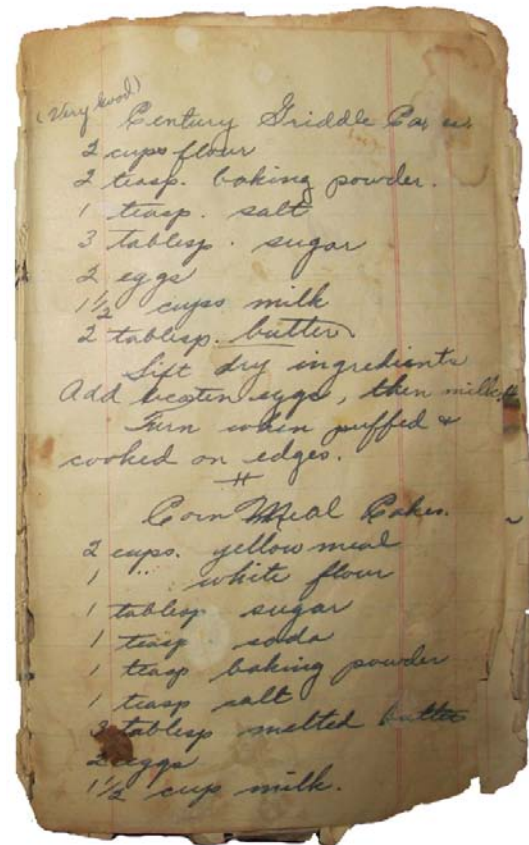 (Very Good)
Century Griddle Cakes.
2 cups flour
2 teasp. baking powder.
1 teasp. salt
3 tablesp. sugar
2 eggs
1 1/2 cups milk
2 tablesp. butter.
Sift dry ingredients
Add beaten eggs, then milk,
Turn when puffed &
cooked on edges.
Corn Meal Cakes.
2 cups. yellow meal
1 " white flour
1 tablesp sugar
1 teasp. soda
1 teasp baking powder
1 teasp salt
3 tablesp melted butter
2 eggs
1 1/2 cup milk.